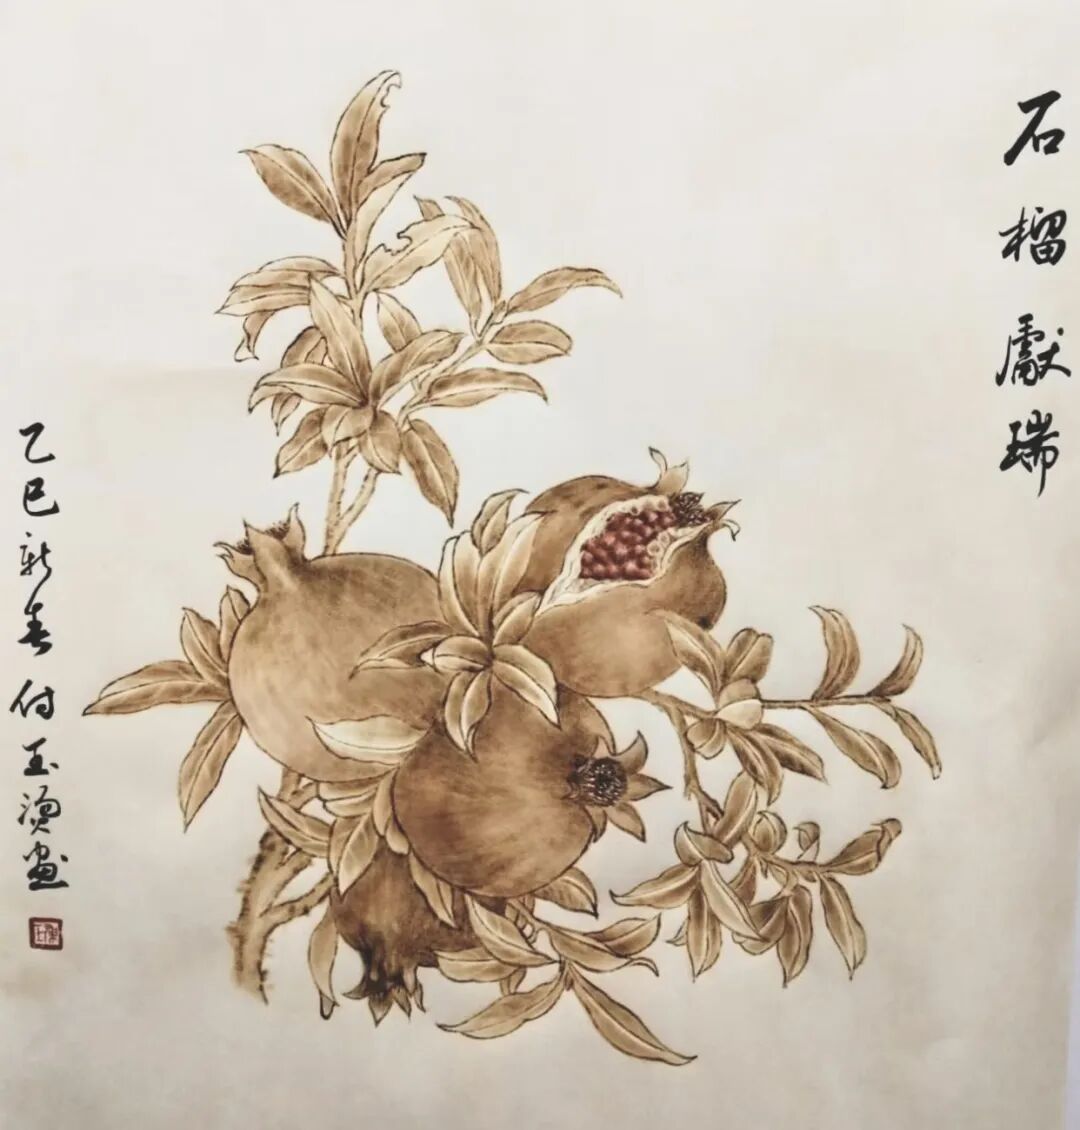 石榴獻瑞
乙巳新春付玉烫画